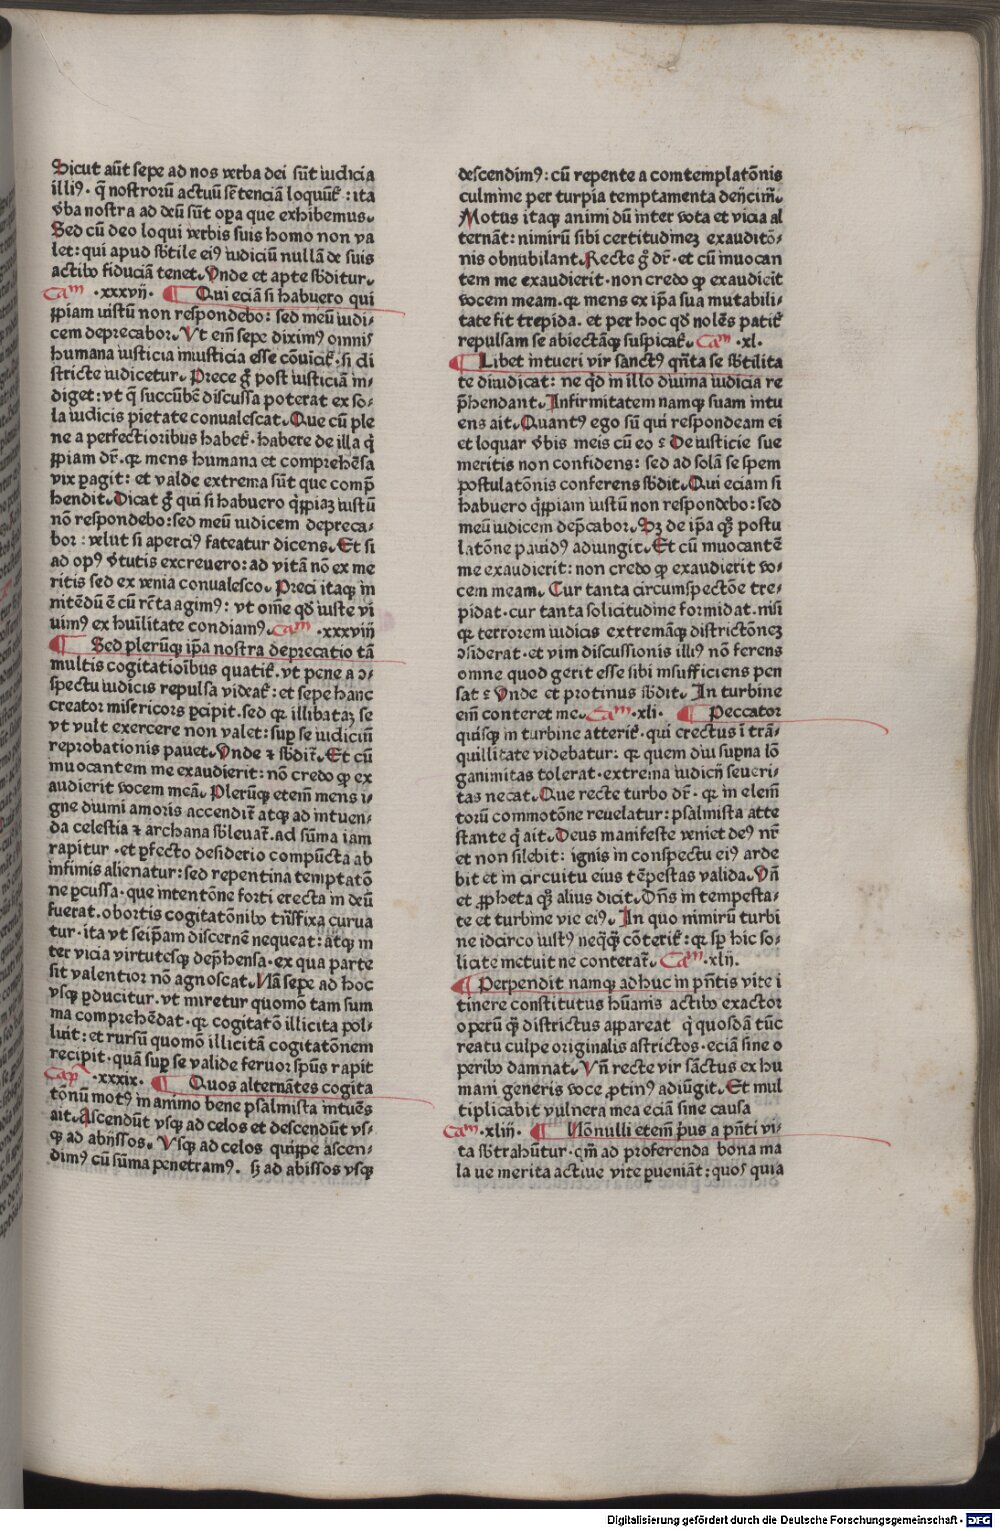 Sicut aūt sepe ad nos verba dei sūt iudicia
illiꝰ. q̄ nostrorū actuū sētenciā loquūt᷑ : ita
v̄ba nostra ad deū sūt oꝑa que exhibemus.
Sed cū deo loqui verbis suis homo non va
let: qui apud sb̄tile eiꝰ iudiciū nullā de suis
actibꝫ fiduciā tenet. Unde et apte sb̄ditur.
Cam .xxxvij. ¶ Qui eciā si habuero qui
ꝓpiam iustū non respondebo: sed meū iudi-
cem deprecabor. Ut em̄ sepe diximꝰ omnis
humana iusticia iniusticia esse cōuicit᷑. si di
stricte iudicetur. Prece g̊ post iusticiā in-
diget: vt q̄ succūbē discussa poterat ex so-
la iudicis pietate conualescat. Que cū ple
ne a perfectioribus habet᷑. habere de illa q̇
ꝓpiam dr̄. qꝛ mens humana et comprehēsa
vix ꝑagit: et valde extrema sūt que comp̄
hendit. Dicat g̊ qui si habuero qͥꝓpiaꝫ iustū
nō respondebo: sed meū iudicem depreca-
bor : velut si aperciꝰ fateatur dicens. Et si
ad opꝰ v̄tutis excreuero: ad vitā nō ex me
ritis sed ex venia conualesco. Preci itaqꝫ in
nitēdū ē cū rc̄ta agimꝰ: vt om̄e qd̄ iuste vi
uimꝰ ex hūilitate condiamꝰ. Cam .xxxviij
¶ Sed plerūqꝫ ip̄a nostra deprecatio tā
multis cogitatioībus quatit᷑. vt pene a ɔ-
spectu iudicis repulsa videat᷑: et sepe hanc
creator misericors ꝑcipit. sed qꝛ illibataꝫ se
vt vult exercere non valet: suꝑ se iudiciū
reprobationis pauet. Unde ⁊ sb̄dit᷑. Et cū
inuocantem me exaudierit: nō credo ꝙ ex
audierit vocem meā. Plerūqꝫ etem̄ mens i-
gne diuini amoris accendit᷑ atqꝫ ad intuen-
da celestia ⁊ archana sb̄leuat᷑. ad sūma iam
rapitur . et ꝑfecto desiderio compūcta ab
infimis alienatur: sed repentina temptatō
ne ꝑcussa. que intentōne forti erecta in deū
fuerat. obortis cogitatōnibꝫ trāsfixa curua
tur . ita vt seip̄am discernē nequeat: atqꝫ in
ter vicia virtutesqꝫ dep̄hensa. ex qua parte
sit valentior nō agnoscat. Nā sepe ad hoc
vsqꝫ ꝑducitur. vt miretur quomō tam sum
ma comprehēdat. qꝛ cogitatō illicita pol-
luit: et rursū quomō illicitā cogitatōnem
recipit. quā suꝑ se valide feruor sp̄us rapit
Cap .xxxix. ¶ Quos alternātes cogita
tōnū motꝰ in animo bene psalmista intuēs
ait. Ascendūt vsqꝫ ad celos et descendūt vs-
qꝫ ad abijssos. Usqꝫ ad celos quippe ascen-
dimꝰ cū sūma penetramꝰ. sꝫ ad abissos vsqꝫ
descendimꝰ: cū repente a comtemplatōnis
culmine per turpia temptamenta deijcim̄.
Motus itaqꝫ animi dū inter vota et vicia al
ternāt: nimirū sibi certitudineꝫ exauditō-
nis obnubilant. Recte g̊ dr̄. et cū inuocan
tem me exaudierit. non credo ꝙ exaudierit
vocem meam. qꝛ mens ex ip̄a sua mutabili-
tate fit trepida. et per hoc qd̄ nolēs patit᷑
repulsam se abiectāqꝫ suspicat᷑. Cam .xl.
¶ Libet intueri vir sanctꝰ qn̄ta se sb̄tilita
te diiudicat: ne qͥd in illo diuina iudicia re
p̄hendant. Infirmitatem namqꝫ suam intu
ens ait. Quantꝰ ego sū qui respondeam ei
et loquar v̄bis meis cū eo ? De iusticie sue
meritis non confidens: sed ad solā se spem
postulatōnis conferens sb̄dit. Qui eciam si
habuero qͥꝓpiam iustū non respondebo: sed
meū iudicem dep̄cabor. Sꝫ de ip̄a qꝫ postu
latōne pauidꝰ adiungit. Et cū inuocantē
me exaudierit: non credo ꝙ exaudierit vo-
cem meam. Cur tanta circumspectōe tre-
pidat. cur tanta solicitudine formidat. nisi
qꝛ terrorem iudicis extremāqꝫ districtōneꝫ
ɔsiderat. et vim discussionis illiꝰ nō ferens
omne quod gerit esse sibi insufficiens pen
sat ? Unde et protinus sb̄dit. In turbine
em̄ conteret me. Cam .xli. ¶ Peccator
quisqꝫ in turbine atterit᷑. qui erectus ī trā-
quillitate videbatur: qꝛ quem diu suꝑna lō
ganimitas tolerat. extrema iudicij seueri-
tas necat. Que recte turbo dr̄. qꝛ in elem̄
torū commotōne reuelatur: psalmista atte
stante q̇ ait. Deus manifeste veniet deꝰ nr̄
et non silebit: ignis in conspectu eiꝰ arde
bit et in circuitu eius tēpestas valida. Un̄
et ꝓpheta qꝫ alius dicit. Dn̄s in tempesta-
te et turbine vie eiꝰ. In quo nimirū turbi
ne idcirco iustꝰ neqͥqꝫ cōterit᷑: qꝛ sꝑ hic so-
licite metuit ne conterat᷑. Cam .xlij.
¶ Perpendit namqꝫ adhuc in pn̄tis vite i
tinere constitutus hūanis actibꝫ exactor
operū qꝫ districtus appareat q̇ quosdā tūc
reatu culpe originalis astrictos. eciā sine o
peribꝫ damnat. Un̄ recte vir sāctus ex hu
mani generis voce ꝓtinꝰ adiūgit. Et mul
tiplicabit vulnera mea eciā sine causa
Cam .xliij. ¶ Nōnulli etem̄ pͥus a pn̄ti vi-
ta sb̄trahūtur. qm̄ ad proferenda bona ma
la ue merita actiue vite ꝑueniāt: quos quia
Digitalisierung gefördert durch die Deutsche Forschungsgemeinschaft - DFG